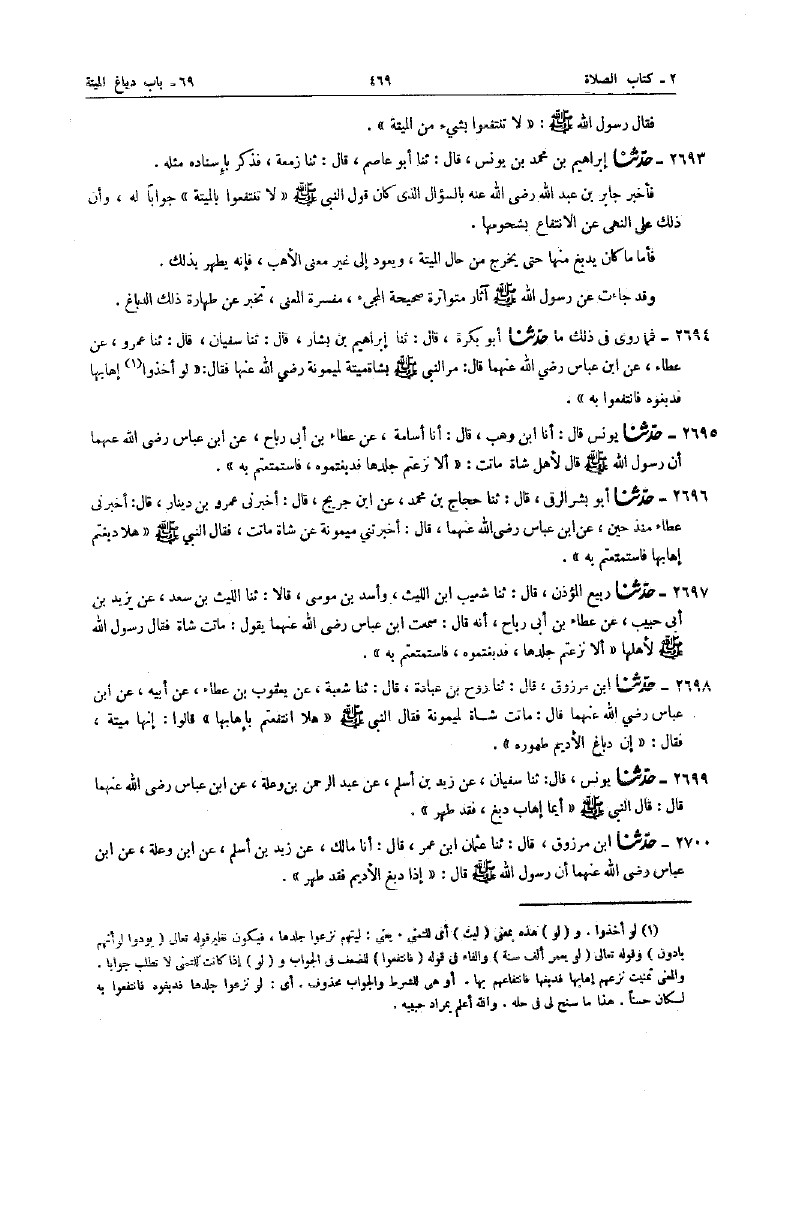 ٢ ـ كتاب الصلاة ٤٦٩ ٦٩ ـ باب دباغ الميتة
فقال رسول الله ﷺ : « لا تنتفعوا بشيء من الميتة » .
٢٦٩٣ ـ حدثنا إبراهيم بن محمد بن يونس ، قال : ثنا أبو عاصم ، قال : ثنا زمعة ، فذكر بإسناده مثله .
فأخبر جابر بن عبد الله رضى الله عنه بالسؤال الذى كان قول النبي ﷺ « لا تنتفعوا بالميتة » جواباً له ، وأن
ذلك على النهى عن الانتفاع بشحومها .
فأما ما كان يدبغ منها حتى يخرج من حال الميتة ، ويعود إلى غير معنى الأهب ، فإنه يطهر بذلك .
وقد جاءت عن رسول الله ﷺ آثار متواترة صحيحة المجيء ، مفسرة المعنى ، تخبر عن طهارة ذلك الدباغ .
٢٦٩٤ ـ فمما روى فى ذلك ما حدثنا أبو بكرة ، قال : ثنا إبراهيم بن بشار ، قال : ثنا سفيان ، قال : ثنا عمرو ، عن
عطاء ، عن ابن عباس رضي الله عنهما قال: مر النبي ﷺ بشاة ميتة لميمونة رضي الله عنها فقال:« لو أخذوا(١) إهابها
فدبغوه فانتفعوا به » .
٢٦٩٥ ـ حدثنا يونس قال : أنا ابن وهب ، قال : أنا أسامة ، عن عطاء بن أبى رباح ، عن ابن عباس رضى الله عنهما
أن رسول الله ﷺ قال لأهل شاة ماتت : « ألا نزعتم جلدها فدبغتموه ، فاستمتعتم به » .
٢٦٩٦ ـ حدثنا أبو بشر الرقى ، قال : ثنا حجاج بن محمد ، عن ابن جريج ، قال : أخبرنى عمرو بن دينار ، قال: أخبرنى
عطاء منذ حين ، عن ابن عباس رضى الله عنهما ، قال : أخبرتني ميمونة عن شاة ماتت ، فقال النبي ﷺ « هلا دبغتم
إهابها فاستمتعتم به » .
٢٦٩٧ ـ حدثنا ربيع المؤذن ، قال : ثنا شعيب ابن الليث ، وأسد بن موسى ، قالا : ثنا الليث بن سعد ، عن يزيد بن
أبى حبيب ، عن عطاء بن أبى رباح ، أنه قال : سمعت ابن عباس رضي الله عنهما يقول : ماتت شاة فقال رسول الله
ﷺ لأهلها « ألا نزعتم جلدها ، فدبغتموه ، فاستمتعتم به » .
٢٦٩٨ ـ حدثنا ابن مرزوق ، قال : ثنا روح بن عبادة ، قال : ثنا شعبة ، عن يعقوب بن عطاء ، عن أبيه ، عن ابن
عباس رضي الله عنهما قال : ماتت شاة لميمونة فقال النبي ﷺ « هلا انتفعتم بإهابها » قالوا : إنها ميتة ،
فقال : « إن دباغ الأديم طهوره » .
٢٦٩٩ ـ حدثنا يونس ، قال: ثنا سفيان ، عن زيد بن أسلم ، عن عبد الرحمن بن وعلة ، عن ابن عباس رضى الله عنهما
قال : قال النبي ﷺ « أيما إهاب دبغ ، فقد طهر » .
٢٧٠٠ ـ حدثنا ابن مرزوق ، قال : ثنا عثمان ابن عمر ، قال : أنا مالك ، عن زيد بن أسلم ، عن ابن وعلة ، عن ابن
عباس رضى الله عنهما أن رسول الله ﷺ قال : « إذا دبغ الأديم فقد طهر » .
(١) لو أخذوا . و ( لو ) هذه بمعنى ( ليت ) أى للتمنى . يعنى : ليتهم نزعوا جلدها ، فيكون نظير قوله تعالى ( يودوا لو أنهم
بادون ) وقوله تعالى ( لو يعمر ألف سنة ) والفاء فى قوله ( فانتفعوا ) للضعف فى الجواب و ( لو ) إذا كانت للتمنى لا تطلب جوابا .
والمعنى تمنيت نزعهم إهابها فدبغها فانتفاعهم بها . أو هى للشرط والجواب محذوف . أى : لو نزعوا جلدها فدبغوه فانتفعوا به
لكان حسناً . هذا ما سنح لى فى حله . والله أعلم بمراد حبيبه .